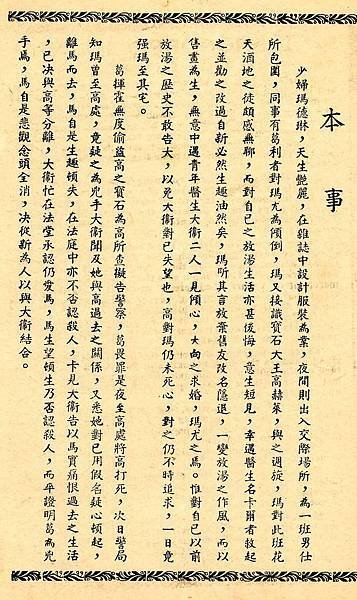 本事
少婦瑪德琳，天生艷麗，在雜誌中設計服裝為業，夜間則出入交際場所，為一班男仕
所包圍，同事有葛利者對瑪尤為傾倒，瑪又接識寶石大王高赫萊，與之週旋，瑪對此班花
天酒地之徒頗感無聊，而對自己之放湯生活亦甚後悔，意生短見，幸遇醫生名卡爾者救起
之並勸之改過自新必然生趣油然矣，瑪听其言放棄舊友改名隱退，一變放湯之作風，而以
售畫為生，無意中遇青年醫生大衛二人一見傾心，大向之求婚，瑪尤之焉。惟對自己以前
放湯之歷史不敢告大，以免大衛對己失望也，高對瑪仍未死心，對之仍不時追求，一日竟
强瑪至其宅。
葛揮霍無度偷盜高之寶石為高所查擬告警察，葛畏罪是夜至高處將高打死，次日警局
知瑪曾至高處，竟疑之為兇手大衛聞及她與高過去之關係，又悉她對己用假名疑心頓起，
離馬而去，馬自是生趣頓失，在法庭中亦不否認殺人，卡見大衛告以馬實痛恨過去之生活
，已决與高等分離，大衛忙在法堂承認仍愛馬，馬生望頓生乃否認殺人，而卒證明葛為兇
手焉，馬自是悲觀念頭全消，决從新為人以與大衛結合。